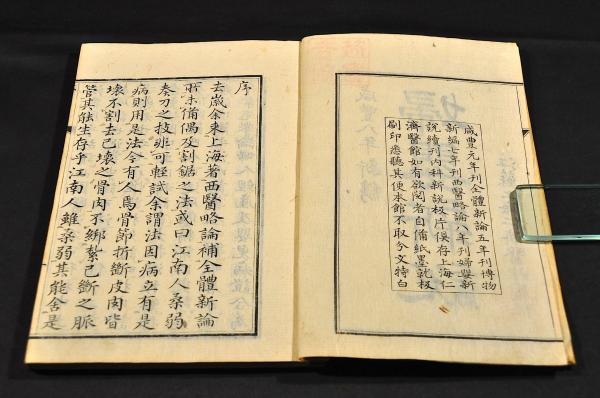 咸豐元年刊全體新論五年刊博物
新編七年刊西醫略論八年刊婦嬰新
說續刊內科新說板片俱存上海仁
濟醫館如有欲閱者自備紙墨就板
刷印悉聽其便本館不取分文特白
序
去歲余來上海著西醫略論補全體新論
所未備偶及割鋸之法或曰江南人柔弱
奏刀之技可輕試余謂法因病立有是
病則用是法今有人焉骨節折斷皮肉皆
壞不割去已壞之骨肉不綁紮已斷之脈
管其能生存乎江南人雖柔弱其能舍是